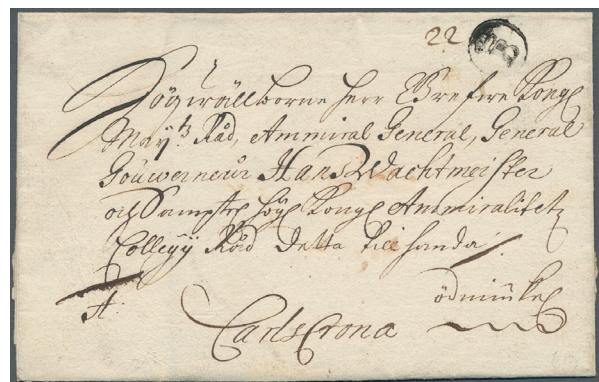 22
Högwälborne Herr Grefwe Kongl
Maÿtz Råd, Ammiral General, General
Gouwerneur Hans Wachtmeister
och Samptl. höge Kongl Ammiralitetz
Collegÿ Råd detta till handa
ödmiukel
A:
CarlsCrona